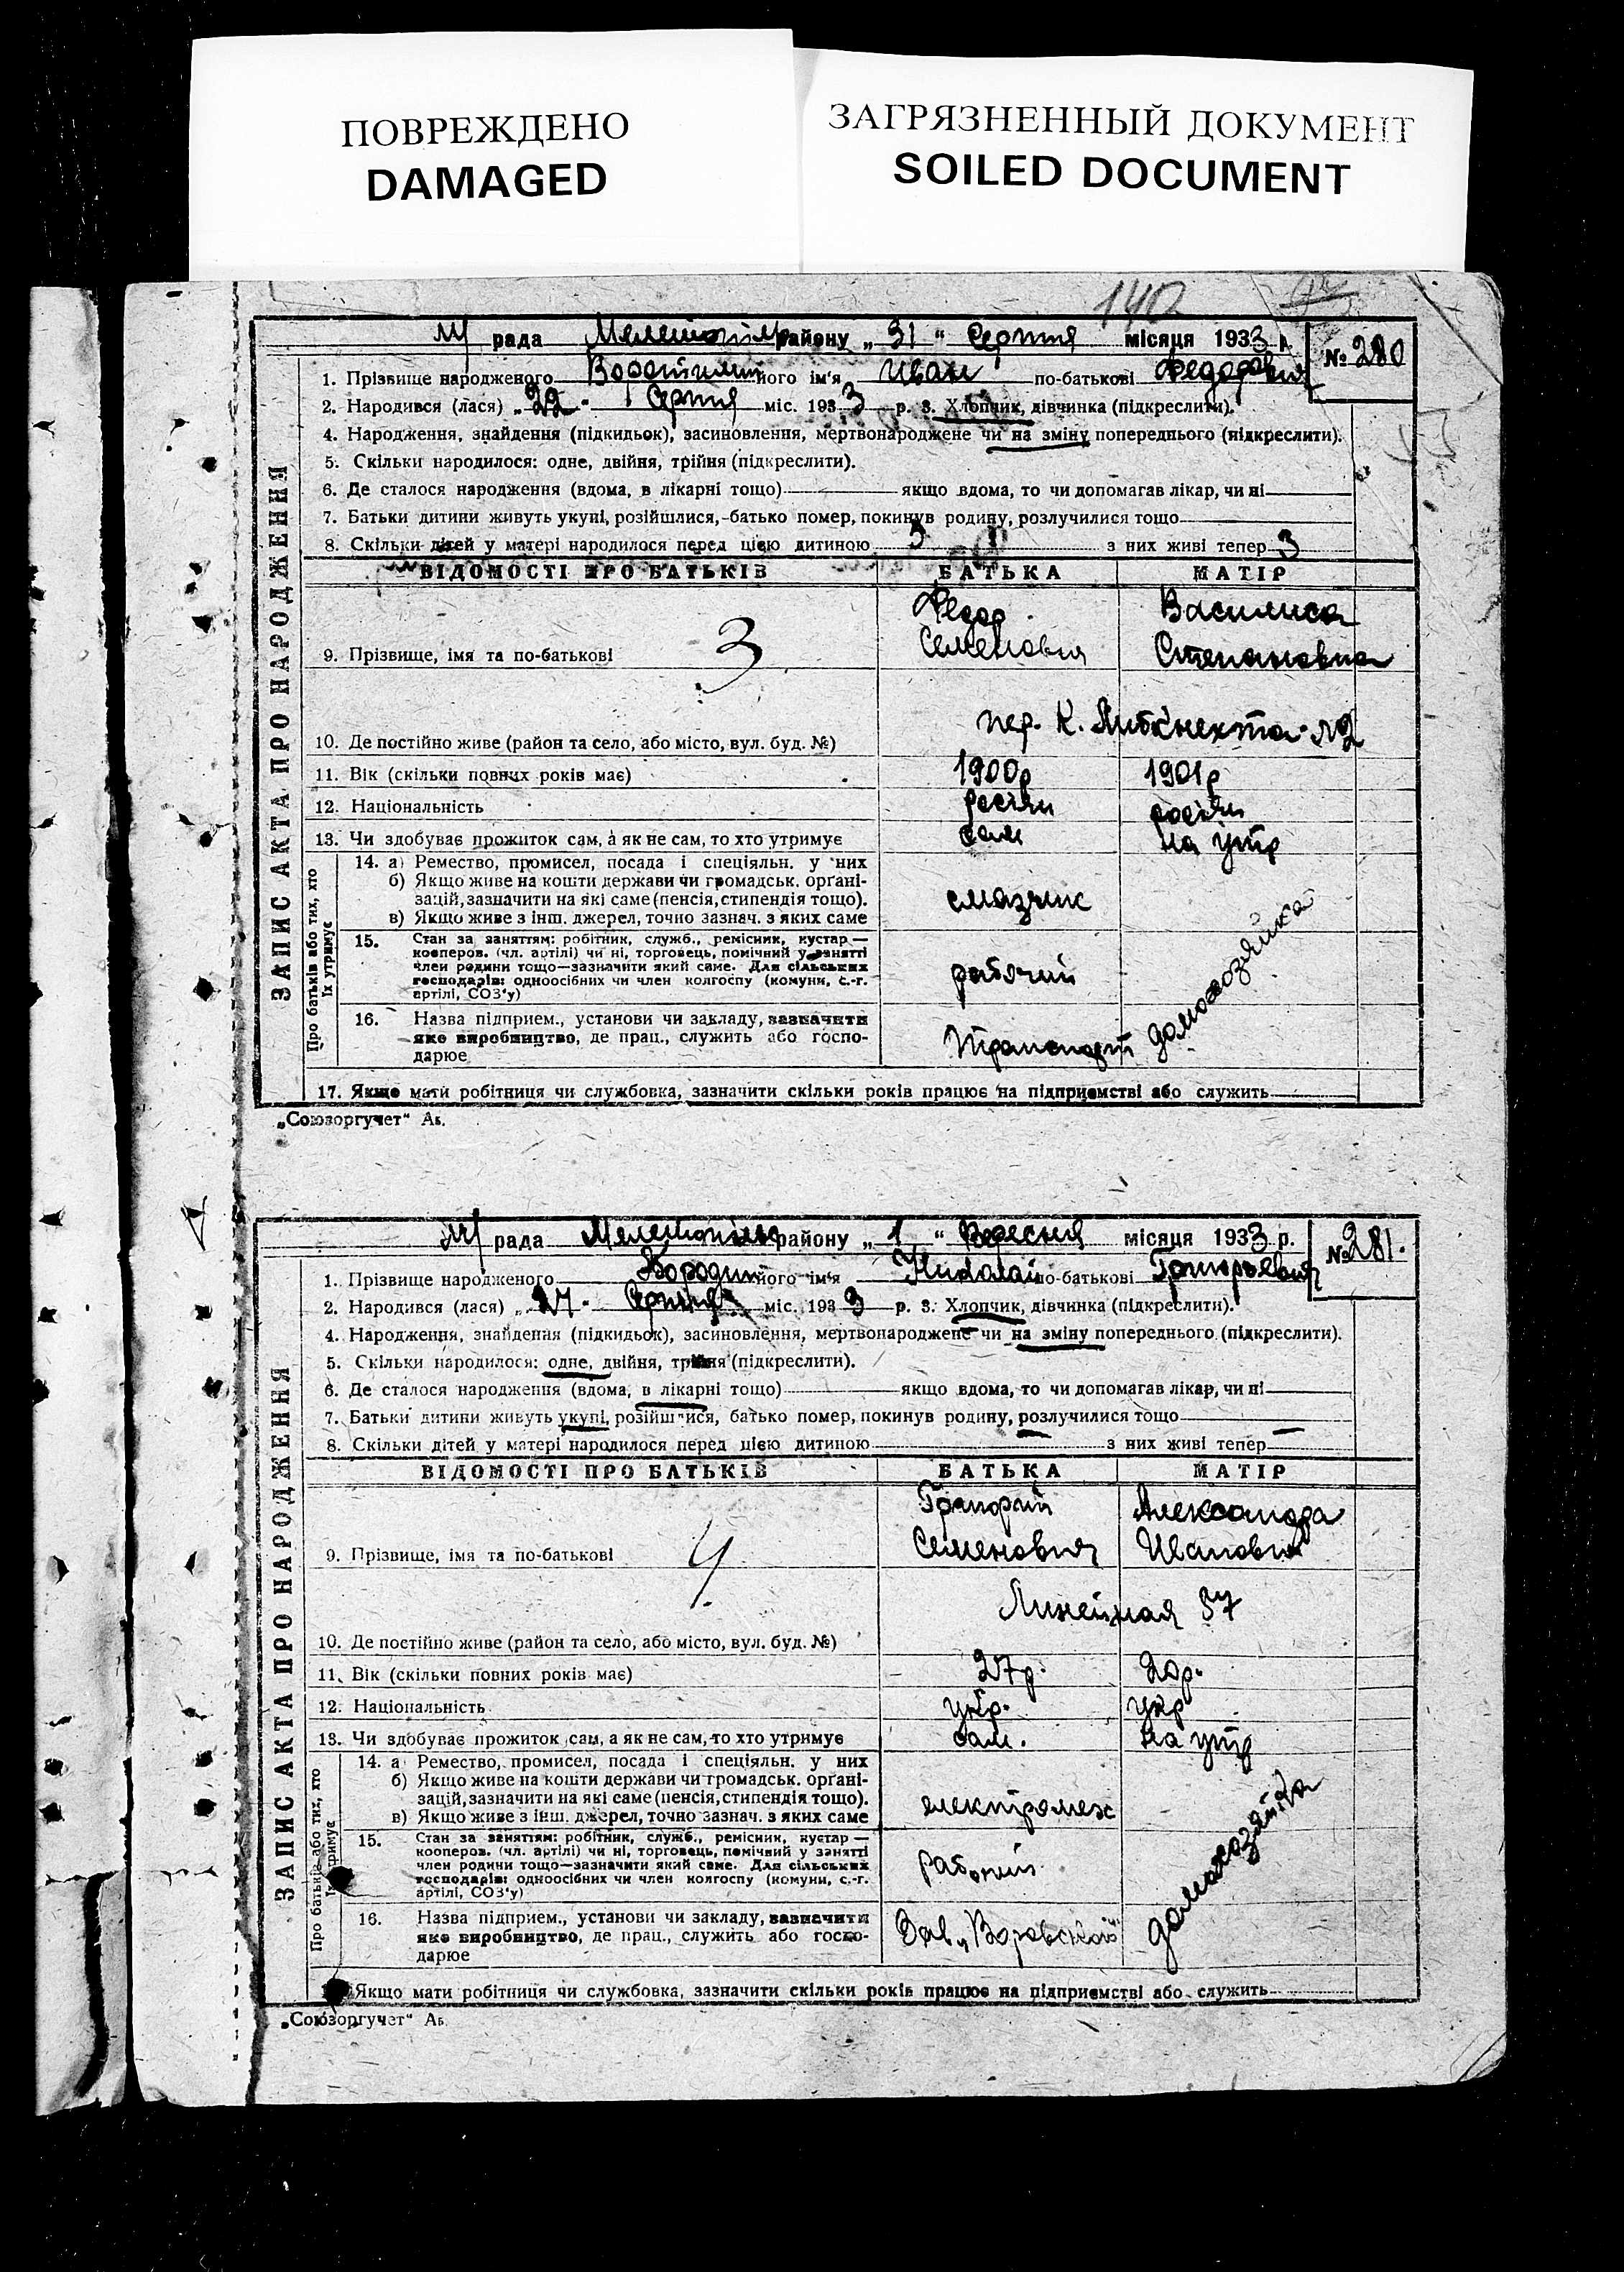 ПОВРЕЖДЕНО
DAMAGED
ЗАГРЯЗНЕННЫЙ ДОКУМЕНТ
SOILED DOCUMENT
140
ЗАПИС АКТА ПРО НАРОДЖЕННЯ
М/ рада району „ 31 “ Серпня місяця 1933 р. № 280
1. Прізвище народженого його ім'я Иван по-батькові Федорович
2. Народився (лася) „ 22 “ Серпня міс. 1933 р. 3. Хлопчик, дівчинка (підкреслити).
4. Народження, знайдення (підкидьок), засиновлення, мертвонароджене чи на зміну попереднього (підкреслити).
5. Скільки народилося: одне, двійня, трійня (підкреслити).
6. Де сталося народження (вдома, в лікарні тощо) якщо вдома, то чи допомагав лікар, чи ні
7. Батьки дитини живуть укупі, розійшлися, батько помер, покинув родину, розлучилися тощо
8. Скільки дітей у матері народилося перед цією дитиною 3 з них живі тепер 3
ВІДОМОСТІ ПРО БАТЬКІВ БАТЬКА МАТІР
Федор Василиса
9. Прізвище, імя та по-батькові 3 Семенович Степановна
10. Де постійно живе (район та село, або місто, вул. буд. №) пер. К. Либкнехта №2
11. Вік (скільки повних років має) 1900р 1901р
12. Національність росіян росіян
13. Чи здобуває прожиток сам, а як не сам, то хто утримує сам на утр
Про батьків або тих, хто їх утримує
14. а) Ремество, промисел, посада і спеціяльн. у них
б) Якщо живе на кошти держави чи громадськ. органі-
зацій, зазначити на які саме (пенсія, стипендія тощо). смазчик
в) Якщо живе з інш. джерел, точно зазнач. з яких саме
15. Стан за заняттям: робітник, служб., ремісник, кустар—
кооперов. (чл. артілі) чи ні, торговець, помічний у занятті
член родини тощо—зазначити який саме. Для сільських
господарів: одноосібних чи член колгоспу (комуни, с.-г.
артілі, СОЗ'у) рабочий домохозяйка
16. Назва підприєм., установи чи закладу, зазначити
яке виробництво, де прац., служить або госпо-
дарює Транспорт
17. Якщо мати робітниця чи службовка, зазначити скільки років працює на підприємстві або служить
„Союзоргучет“ Ав.
ЗАПИС АКТА ПРО НАРОДЖЕННЯ
М/ рада району „ 1 “ Вересня місяця 1933 р. № 281.
1. Прізвище народженого Бородин його ім'я Николай по-батькові Григорьевич
2. Народився (лася) „ 27 “ Серпня міс. 1933 р. 3. Хлопчик, дівчинка (підкреслити).
4. Народження, знайдення (підкидьок), засиновлення, мертвонароджене чи на зміну попереднього (підкреслити).
5. Скільки народилося: одне, двійня, трійня (підкреслити).
6. Де сталося народження (вдома, в лікарні тощо) якщо вдома, то чи допомагав лікар, чи ні
7. Батьки дитини живуть укупі, розійшлися, батько помер, покинув родину, розлучилися тощо
8. Скільки дітей у матері народилося перед цією дитиною з них живі тепер —
ВІДОМОСТІ ПРО БАТЬКІВ БАТЬКА МАТІР
Григорий Александра
9. Прізвище, імя та по-батькові 4 Семенович Ивановна
10. Де постійно живе (район та село, або місто, вул. буд. №) Линейная 57
11. Вік (скільки повних років має) 27р. 20р.
12. Національність укр. укр
13. Чи здобуває прожиток сам, а як не сам, то хто утримує сам. на утр
Про батьків або тих, хто їх утримує
14. а) Ремество, промисел, посада і спеціяльн. у них
б) Якщо живе на кошти держави чи громадськ. органі-
зацій, зазначити на які саме (пенсія, стипендія тощо).
в) Якщо живе з інш. джерел, точно зазнач. з яких саме електромех
15. Стан за заняттям: робітник, служб., ремісник, кустар—
кооперов. (чл. артілі) чи ні, торговець, помічний у занятті
член родини тощо—зазначити який саме. Для сільських
господарів: одноосібних чи член колгоспу (комуни, с.-г.
артілі, СОЗ'у) рабочий домохозяйка
16. Назва підприєм., установи чи закладу, зазначити
яке виробництво, де прац., служить або госпо-
дарює Зав „Воровского“
Якщо мати робітниця чи службовка, зазначити скільки років працює на підприємстві або служить
„Союзоргучет“ Ав.